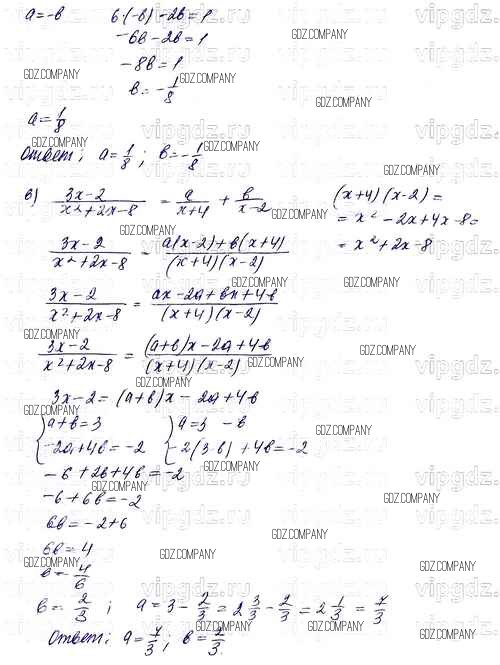 a=-b   6·(-b)-2b=1
-6b-2b=1
-8b=1
b=-1/8
a=1/8
Ответ: a=1/8; b=-1/8
в) (3x-2)/(x²+2x-8) = a/(x+4) + b/(x-2)   (x+4)(x-2)=
= x²-2x+4x-8=
= x²+2x-8
(3x-2)/(x²+2x-8) = (a(x-2)+b(x+4))/((x+4)(x-2))
(3x-2)/(x²+2x-8) = (ax-2a+bx+4b)/((x+4)(x-2))
(3x-2)/(x²+2x-8) = ((a+b)x-2a+4b)/((x+4)(x-2))
3x-2=(a+b)x-2a+4b
{a+b=3   {a=3-b
-2a+4b=-2   -2(3-b)+4b=-2
-6+2b+4b=-2
-6+6b=-2
6b=-2+6
6b=4
b=4/6
b=2/3; a=3-2/3=2 3/3-2/3=2 1/3=7/3
Ответ: a=7/3; b=2/3.
vipgdz.com
GDZ.COMPANY